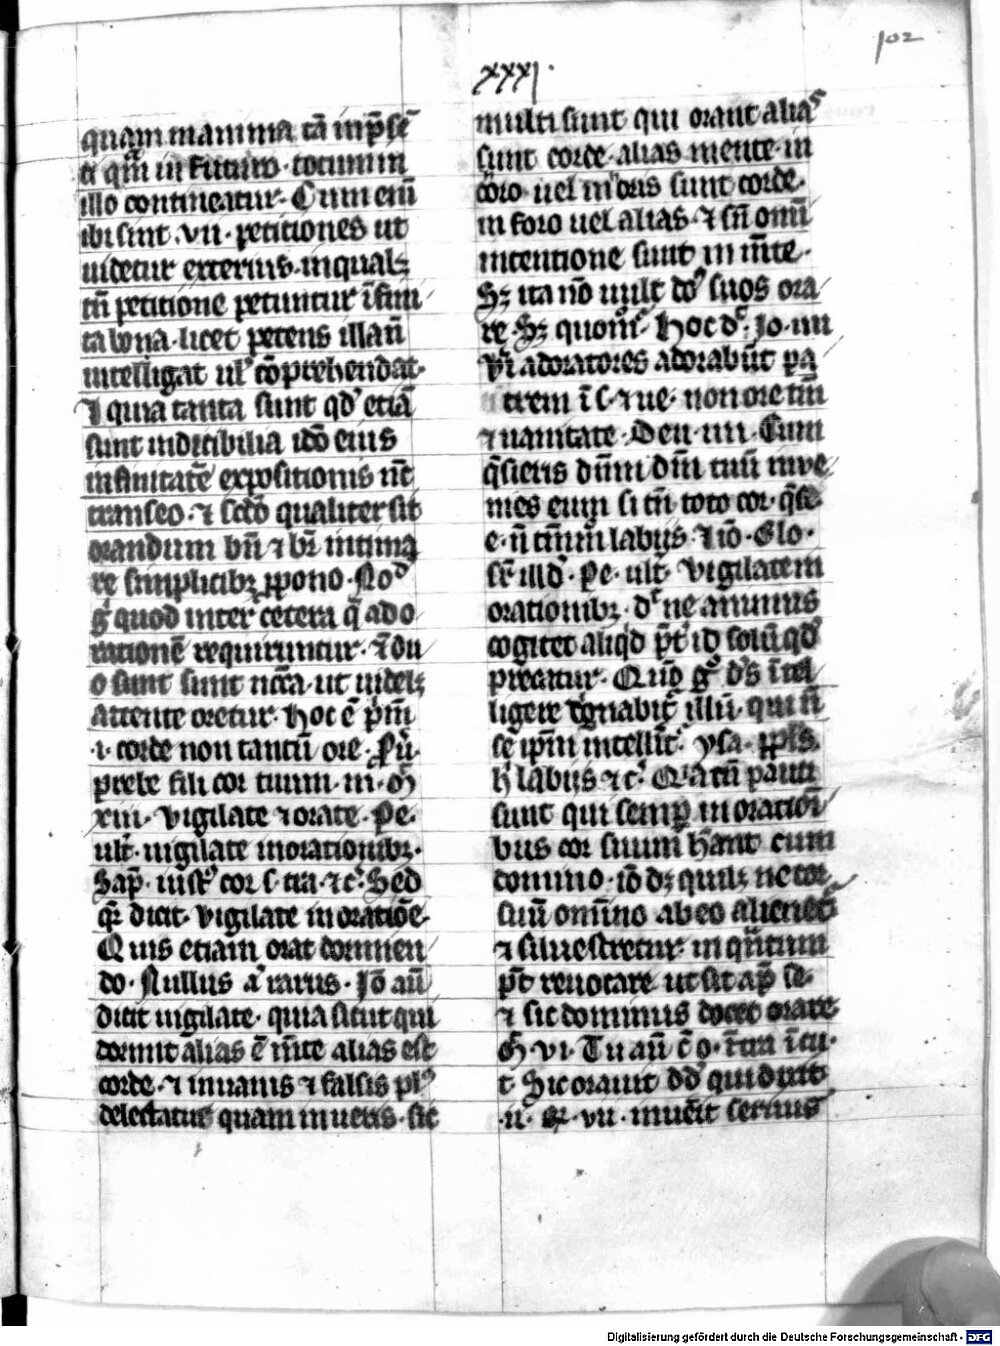 102
xxxi.
quam mamma tā inp̄sē
ti qm̄ in futuro. totum in
illo contineatur. Cum enī
ibi sint .vii. petitiones ut
uidetur exterius. in qualꝫ
tn̄ petitione petuntur īfini
ta bona. licet petens illa nō
intelligat ul' cōprehendat.
Et quia tanta sunt qd' etiā
sunt indicibilia idō eius
infinitatē expositionis nc̄
transeo. ⁊ sc̄do qualiter sit
orandum bn̄ ⁊ br̄ intima
re simplicibꝫ ꝓpono. Nod
gͦ quod inter cetera q̄ ad o
rationē requiruntur. ⁊ du
o sunt sunt nc̄c̄a. ut uidelꝫ
attente oretur. hoc ē pm̄
.i. corde non tantū ore. Pū.
prebe fili cor tuum. m. Mͬ
xiii. Vigilate ⁊ orate. Pe.
ult. uigilate in orationibꝫ.
Sap. iust' cor s. tra. ⁊c. Sed
qr̄ dicit. Vigilate in oratiōe.
Quis etiam orat dormien
do. Nullus aͭ rarus. Iō aū
dicit uigilate. quia sicut qui
dormit alias ē m̄te alias est
corde. ⁊ in uanis ⁊ falsis pl'
delectatur quam in ueris. sic
multi sunt qui orant alias
sunt corde. alias mente. in
coro uel m'oris sunt corde.
in foro uel alias. ⁊ sn̄ omī
intentione sunt in m̄te.
Sꝫ ita nō uult do' suos ora
re. Sꝫ quom̄. hoc dͬ. Jo. iiii
Vi adoratores adorabūt pa
trem ī s. ⁊ ue. non ore tm̄
⁊ uanitate. Deu. iiii. Cum
q̄sieris dn̄m dm̄ tuū inve
nies eum si tn̄ toto cor. q̄sie
e. n̄ tm̄m labijs. Et iō. Glo.
sr̄ illd. Pe. ult. Vigilate in
orationibꝫ. dͬ ne animus
cogitet aliqd p̄t id solū qd
precatur. Quō gͦ d's ītel
ligere dignabit' illū. qui n̄
se ipm̄ intelligit. ysa. ppl's
h' labijs ⁊c. Q'a tn̄ pauci
sunt qui semp in oratiōi
bus cor suum h'ant cum
domino. iō dꝫ quilꝫ ne cor
suū omīno ab eo alienet'
⁊ siluestretur. in qn̄tum
pt̄ reuocare ut sit ap̄ se.
⁊ sic dominus docet orare
Mͬ. vi. Tu aū c̄ o. ītra ī cu.
t. Sic orauit dd qui dixit
.ii. R. vii. inuēit seruus
Digitalisierung gefördert durch die Deutsche Forschungsgemeinschaft - DFG